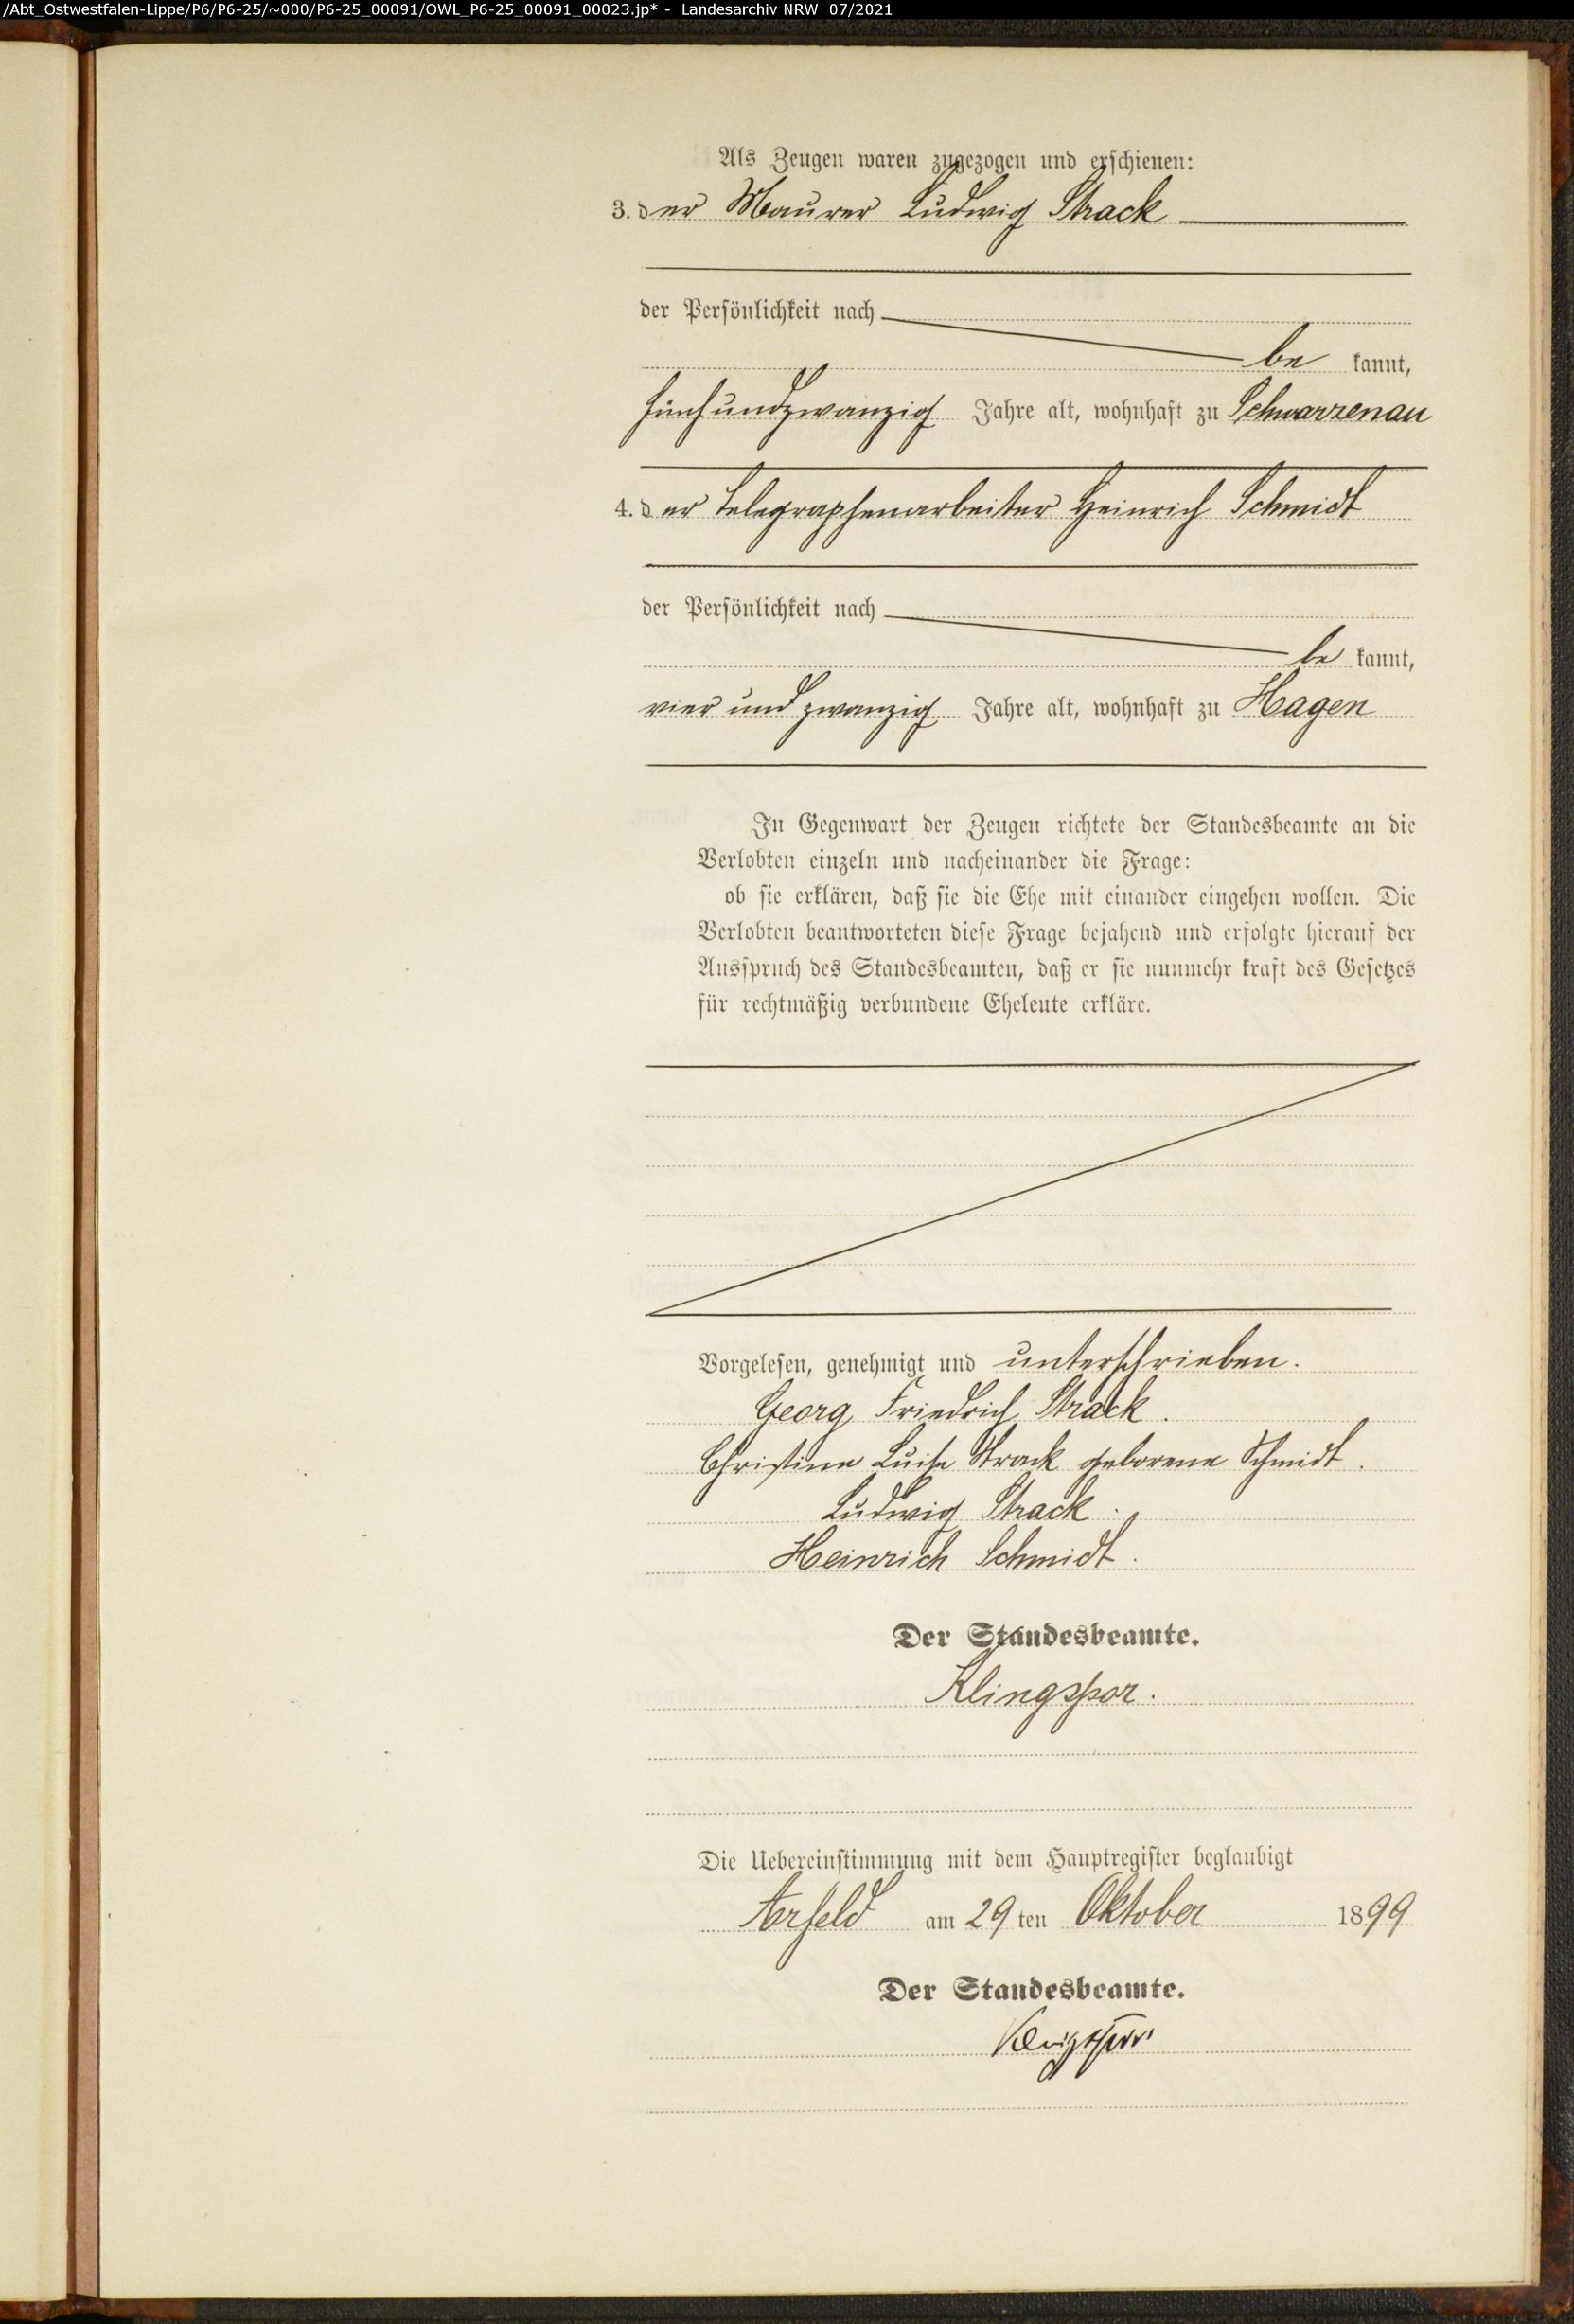 /Abt_Ostwestfalen-Lippe/P6/P6-25/~000/P6-25_00091/OWL_P6-25_00091_00023.jp* - Landesarchiv NRW 07/2021
Als Zeugen waren zugezogen und erschienen:
3. der Maurer Ludwig Strack
der Persönlichkeit nach
be kannt,
fünfundzwanzig Jahre alt, wohnhaft zu Schwarzenau
4. der Telegraphenarbeiter Heinrich Schmidt
der Persönlichkeit nach
be kannt,
vier und zwanzig Jahre alt, wohnhaft zu Hagen
In Gegenwart der Zeugen richtete der Standesbeamte an die
Verlobten einzeln und nacheinander die Frage:
ob sie erklären, daß sie die Ehe mit einander eingehen wollen. Die
Verlobten beantworteten diese Frage bejahend und erfolgte hierauf der
Ausspruch des Standesbeamten, daß er sie nunmehr kraft des Gesetzes
für rechtmäßig verbundene Eheleute erkläre.
Vorgelesen, genehmigt und unterschrieben.
Georg Friedrich Strack.
Christine Luise Strack geborene Schmidt.
Ludwig Strack.
Heinrich Schmidt.
Der Standesbeamte.
Klingspor.
Die Uebereinstimmung mit dem Hauptregister beglaubigt
Arfeld am 29 ten Oktober 1899
Der Standesbeamte.
Klingspor